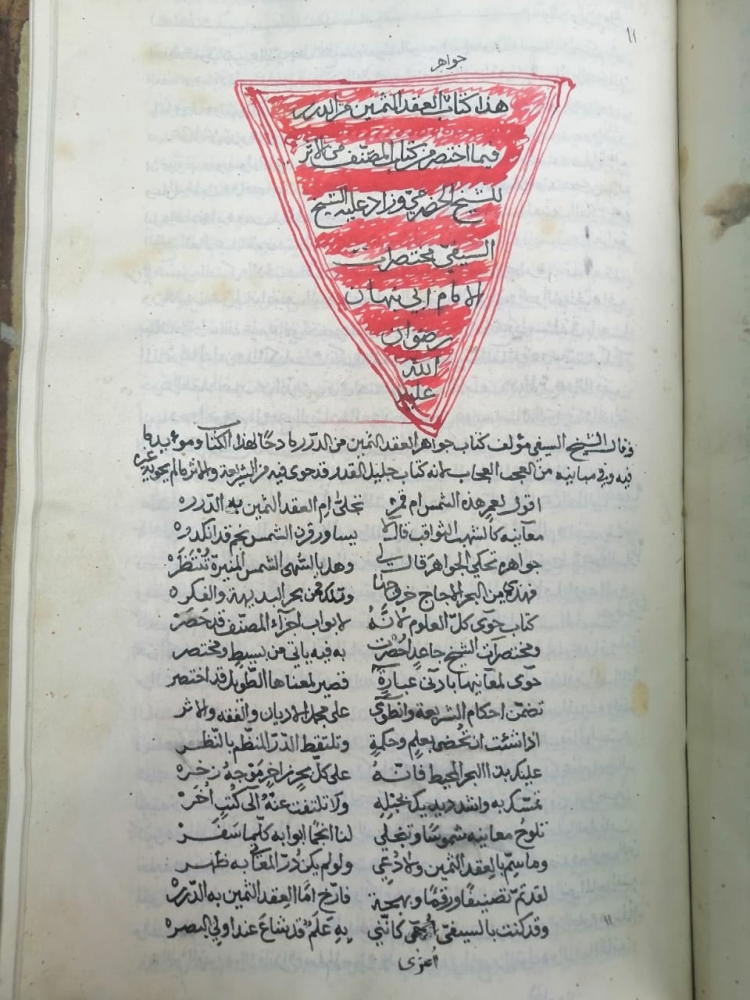 ١١
جواهر
هذا كتاب العقد الثمين من الدرر
فيما اختصر من كتاب المصنف في الاثر
للشيخ وزاد عليه الشيخ
السيفي مختصرات
الامام ابي نبهان
رضوان
الله
عليه
وقال الشيخ السيفي مؤلف كتاب جواهر العقد الثمين من الدرر مادحا لهذا الكتاب
فيه وفي مبانيه من العجب العجاب لانه كتاب جليل القدر قد حوى فيه من الشريعة والاثر مالم يحويه غيره
اقول لعمر هذه الشمس ام قمر تجلى ام العقد الثمين به الدرره
معانيه كالشهب الثواقب قال بساور قرن الشمس نجم قد انكدره
جواهره تحكي الجواهر قال لي وهل بالسهى الشمس المنيرة تنتظره
فهذي من البحر الاجاج خروجها وتلك من بحر البديهة والفكره
كتاب حوى كل العلوم لانه لابواب اجزاء المصنف قد حصر
ومختصرات الشيخ جاعد احضرت به فيه ياتي من بسيط ومختصر
حوى لمعانيها بادنى عبارة فصير لمعناها الطويل قد اختصر
تضمن احكام الشريعة وانطوى على مجمل الاديان والفقه والاثر
اذا شئت ان تحضى بعلم وحكمة وتلتقط الدر المنظم بالنظر
عليك بهذا البحر المحيط فانه على كل بحر زاخر موجه زخره
تمسك به واشدد يديك بحبله ولا تلتفت عنه الى كتب اخر
تلوح معانيه شموسا وتنجلي لنا انجما ابوابه كلما سفر
وما سم بالعقد الثمين ولا دعي ولو لم يكن در المعاني به ظهر
لقد تم تصنيفا ورقما وبهجة فارخ اما العقد الثمين به الدرره
وقد كنت بالسيفي ادعى كانني به علم قد شاع عند اولي البصره
اعزى